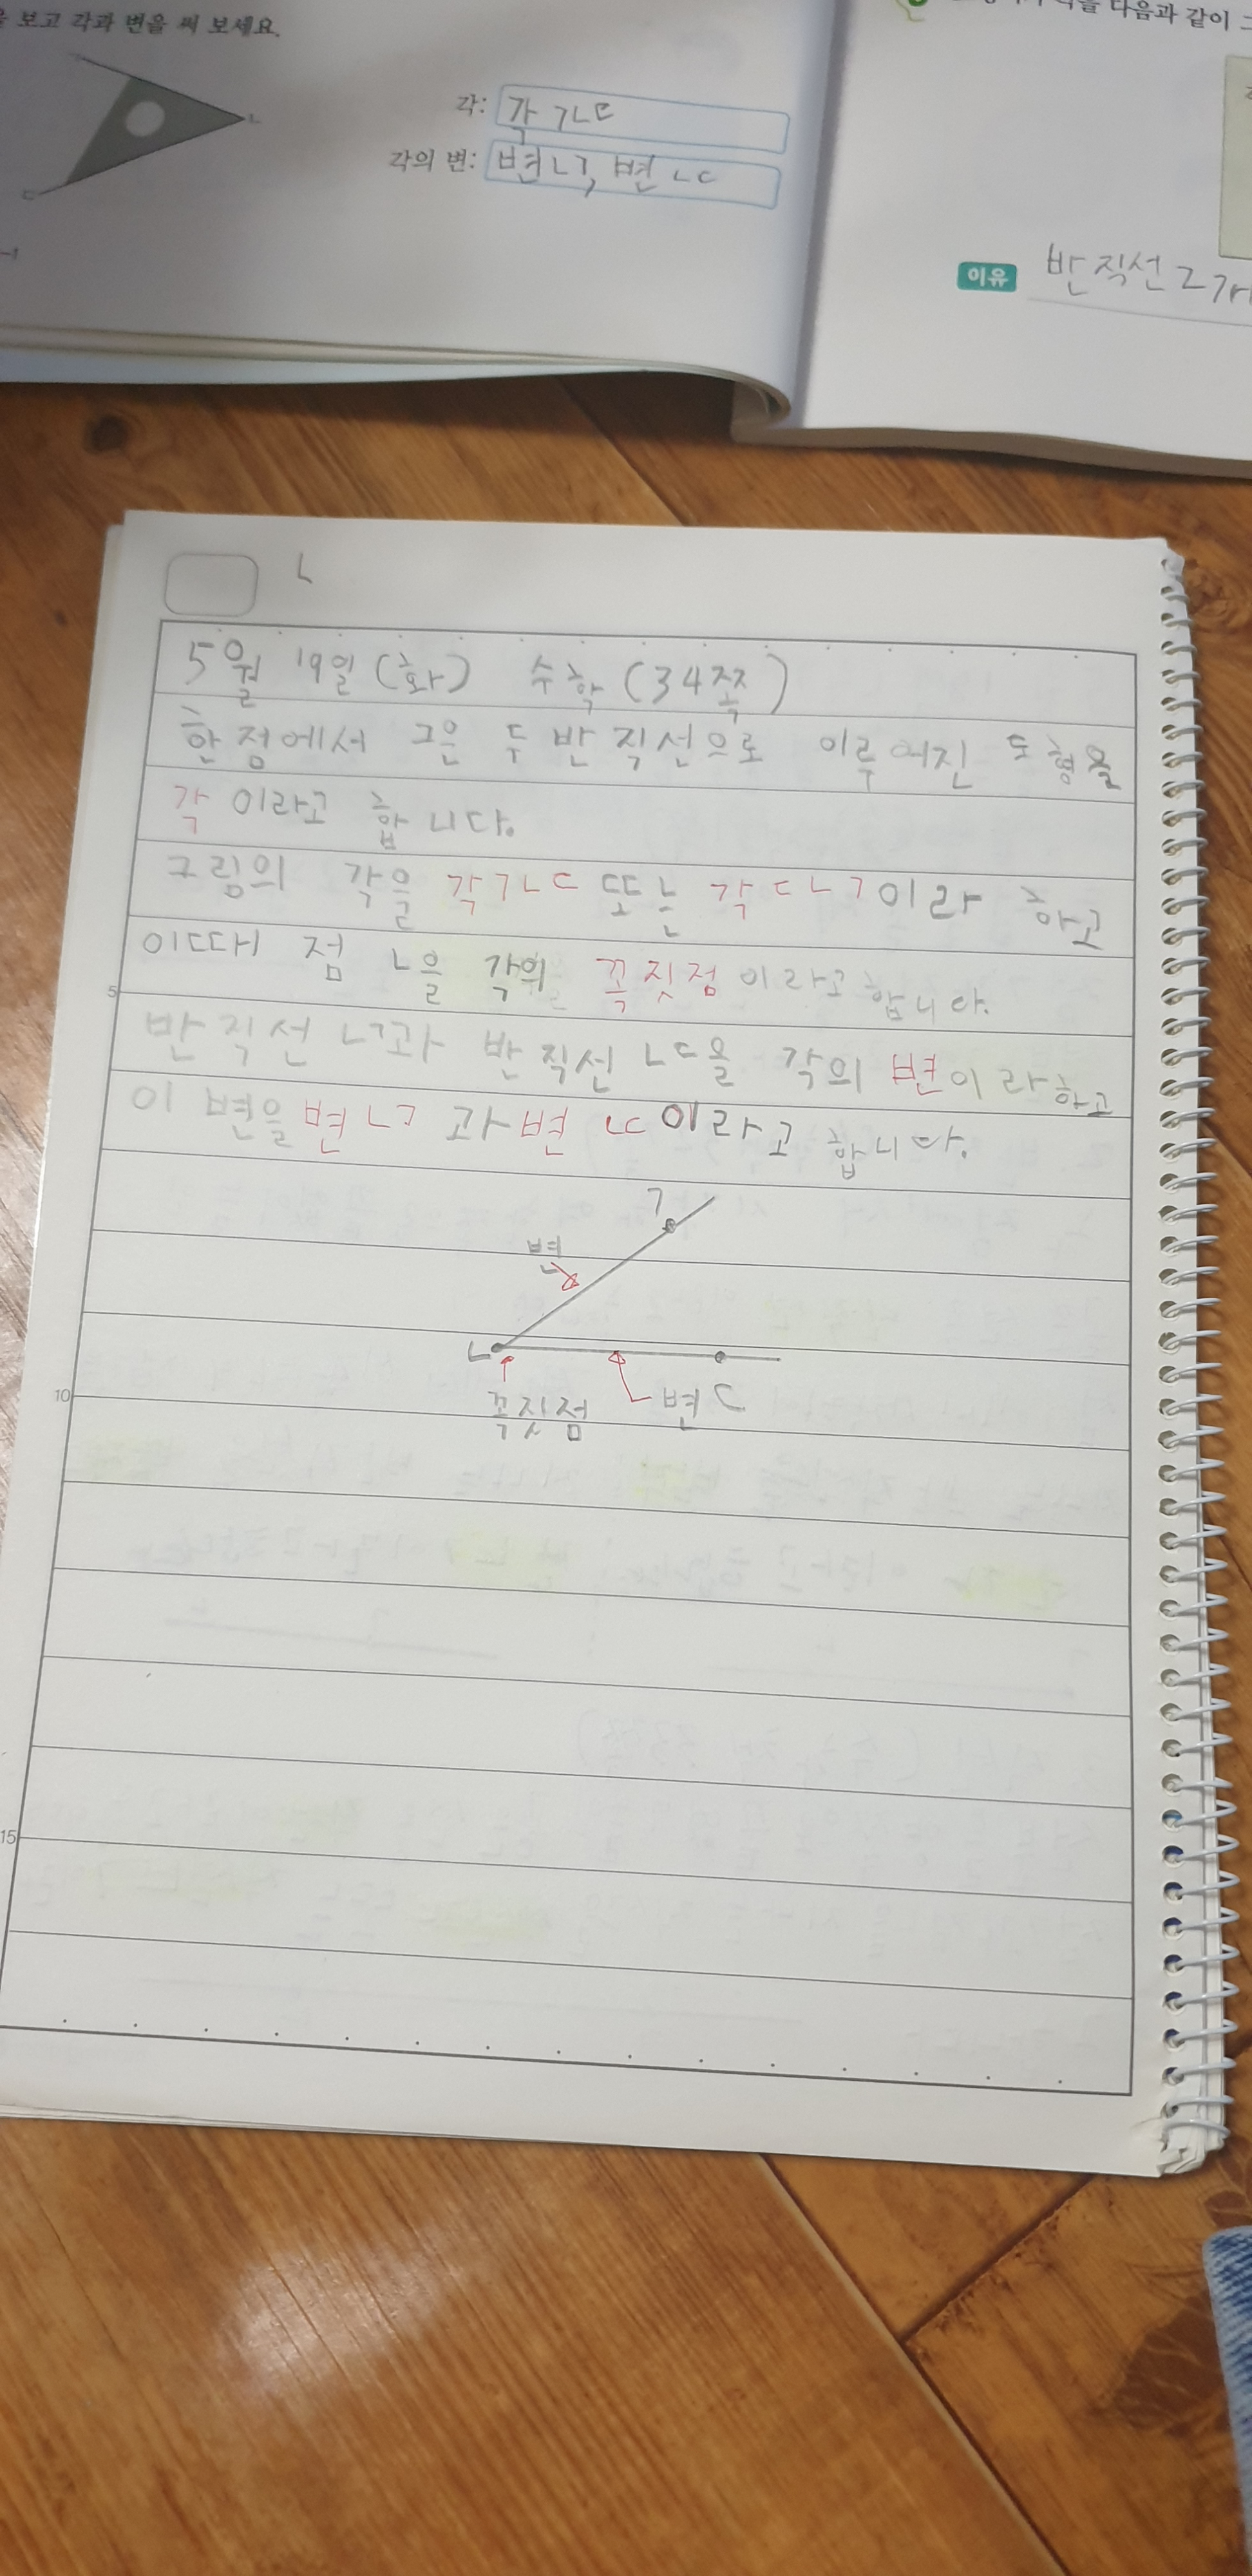 보고 각과 변을 써 보세요.
각: 각 ㄱㄴㄷ
각의 변: 변ㄴㄱ, 변 ㄴㄷ
ㄴ
ㄷ
다음과 같이
이유 반직선ㄹ
ㄴ
5월 19일(화) 수학(34쪽)
한점에서 그은 두 반직선으로 이루어진 도형을
각이라고 합니다.
그림의 각을 각ㄱㄴㄷ 또는 각ㄷㄴㄱ이라 하고
이때 점 ㄴ을 각의 꼭짓점이라고 합니다.
5
반직선 ㄴㄱ과 반직선 ㄴㄷ을 각의 변이라하고
이 변을 변ㄴㄱ과 변 ㄴㄷ이라고 합니다.
ㄱ
변
ㄴ
10
꼭짓점
변 ㄷ
15